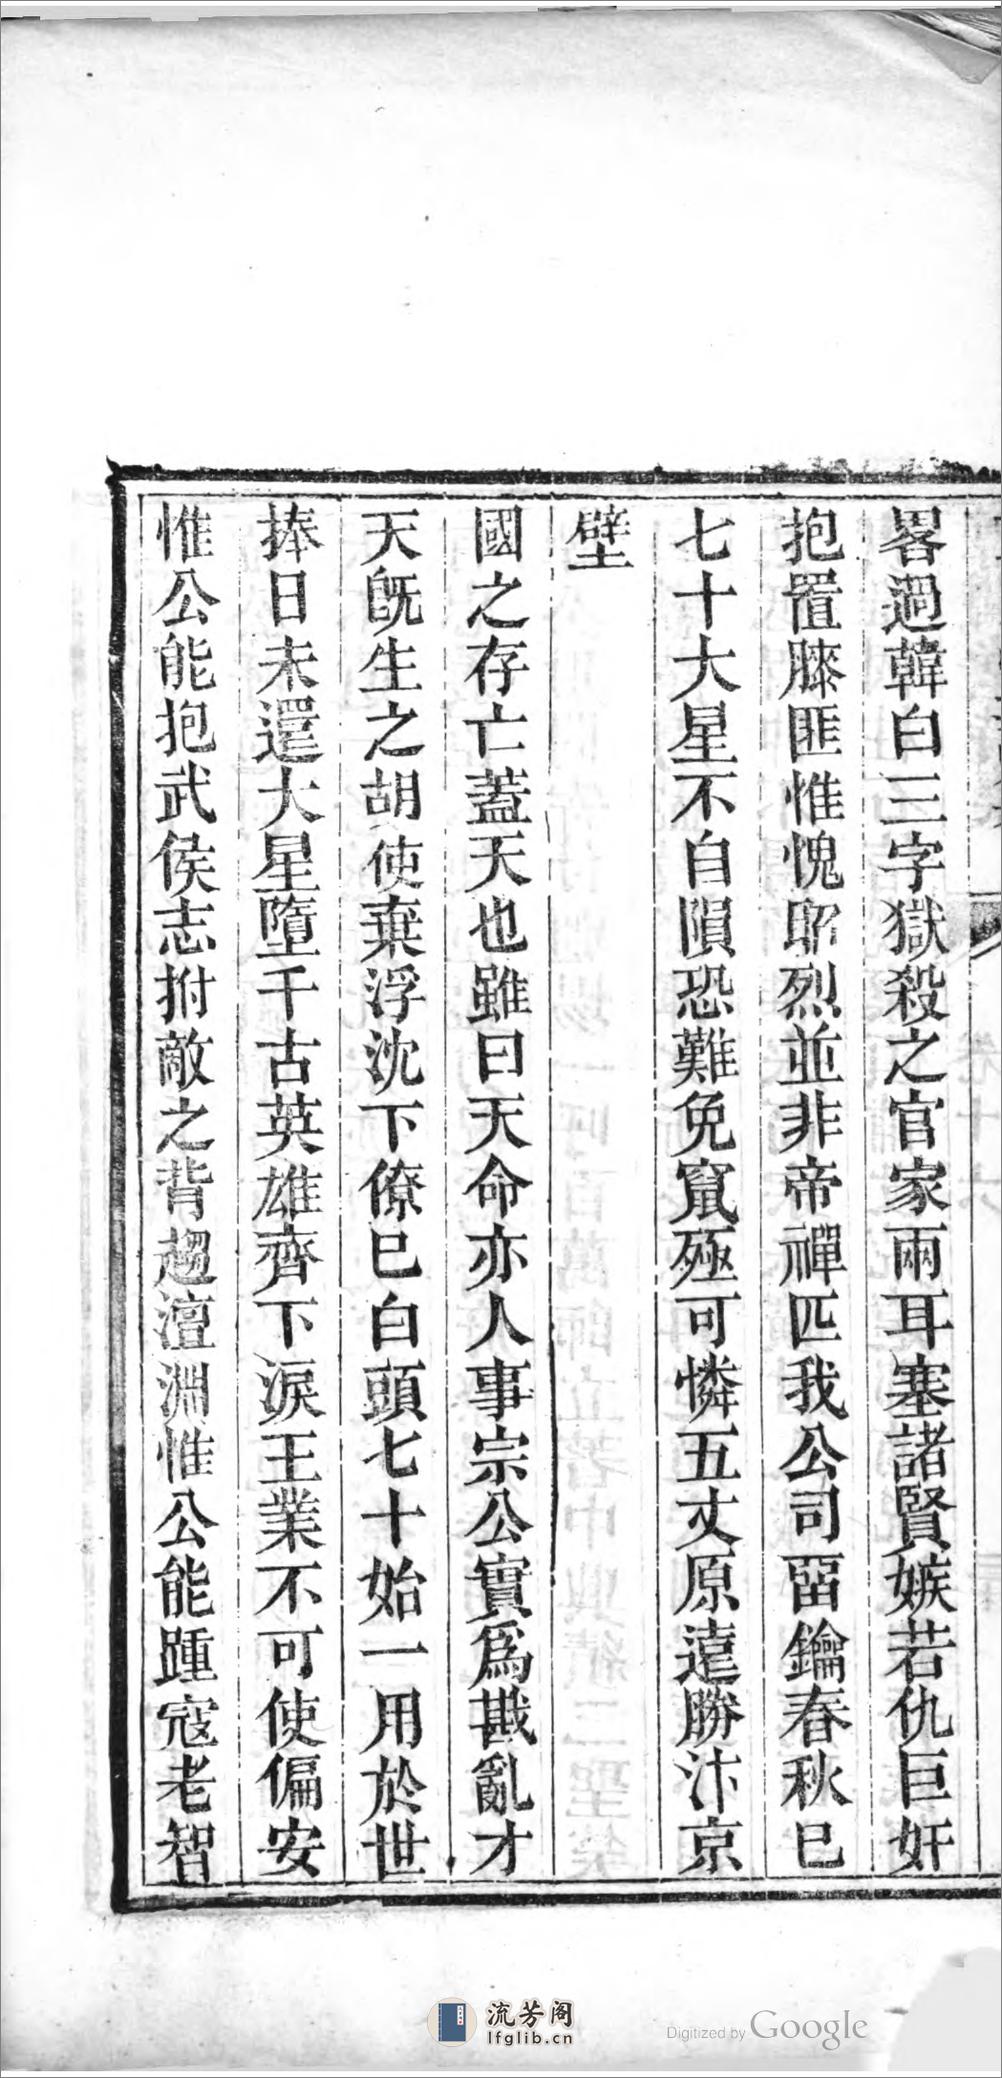 畧過韓白三字獄殺之官家兩耳塞諸賢嫉若仇巨奸
抱置膝匪惟愧昭烈並非帝禪匹我公司畱鑰春秋已
七十大星不自隕恐難免竄殛可憐五丈原遠勝汴京
壁
國之存亡蓋天也雖曰天命亦人事宗公實爲戡亂才
天旣生之胡使棄浮沈下僚已白頭七十始一用於世
捧日未還大星墮千古英雄齊下淚王業不可使偏安
惟公能抱武侯志拊敵之背趨澶淵惟公能踵寇老智
流芳阁
lfglib.cn
Digitized by Google